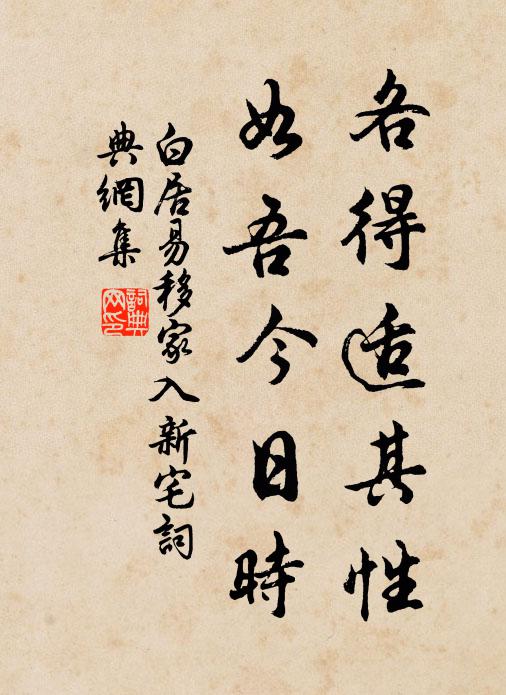 各得适其性
如吾今日時
白居易移家入新宅詞
典網集
詞典
网印